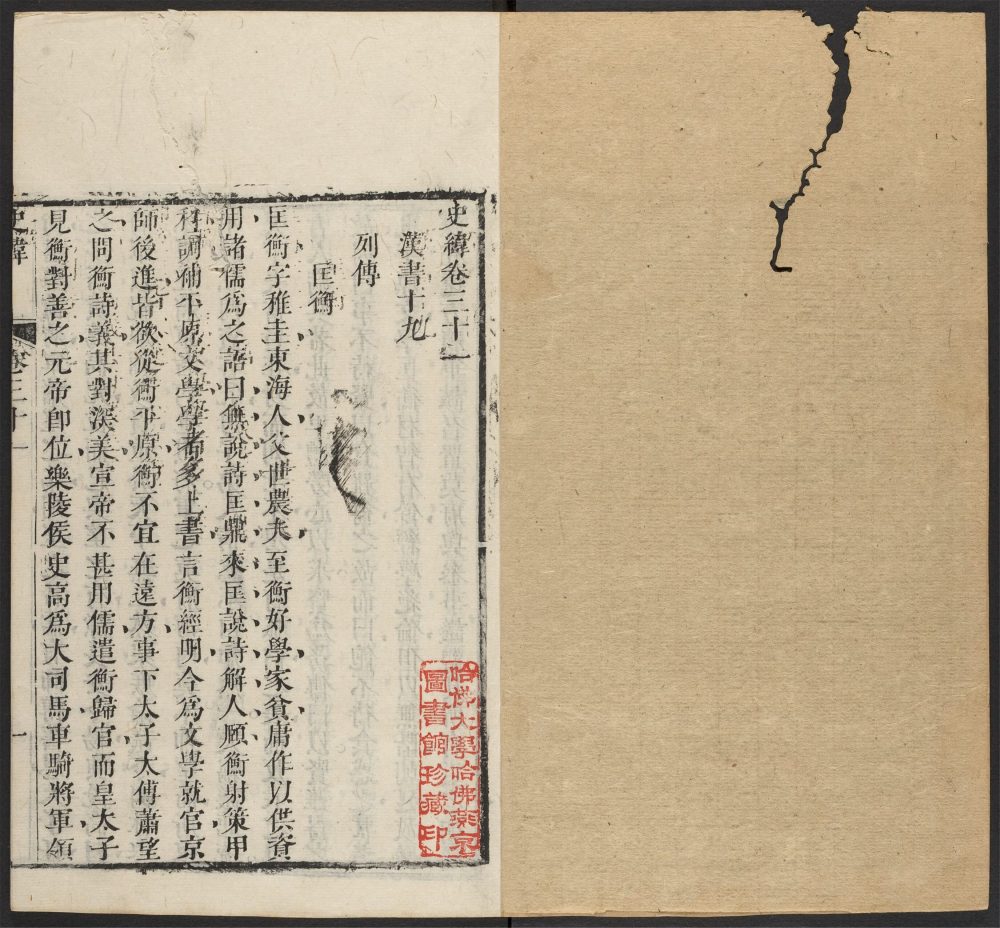 史緯卷三十一
漢書十九
列傳
匡衡
匡衡字稚圭東海人父世農夫至衡好學家貧庸作以供資
用諸儒爲之語曰無說詩匡鼎來匡說詩解人頤衡射策甲
科調補平原文學學者多上書言衡經明今爲文學就官京
師後進皆欲從衡平原衡不宜在遠方事下太子太傅蕭望
之問衡詩義其對深美宣帝不甚用儒遣衡歸官而皇太子
見衡對善之元帝卽位樂陵侯史高爲大司馬車騎將軍領
史緯
卷三十一
一
哈佛大學哈佛燕京
圖書館珍藏印